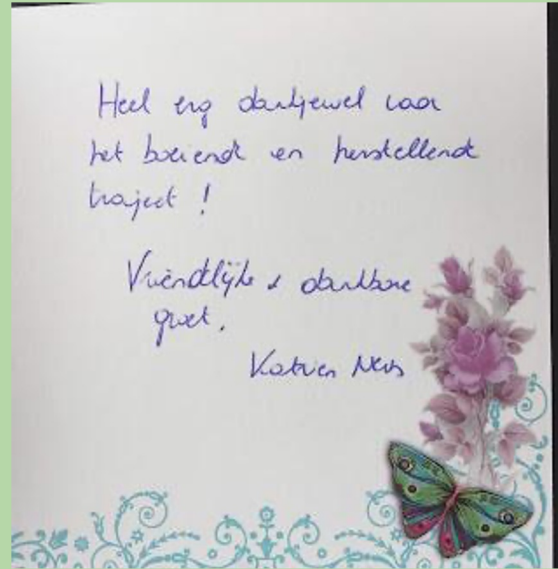 Heel erg dankjewel voor
het boeiende en herstellende
traject !
Vriendelijke & dankbare
groet,
Katrien